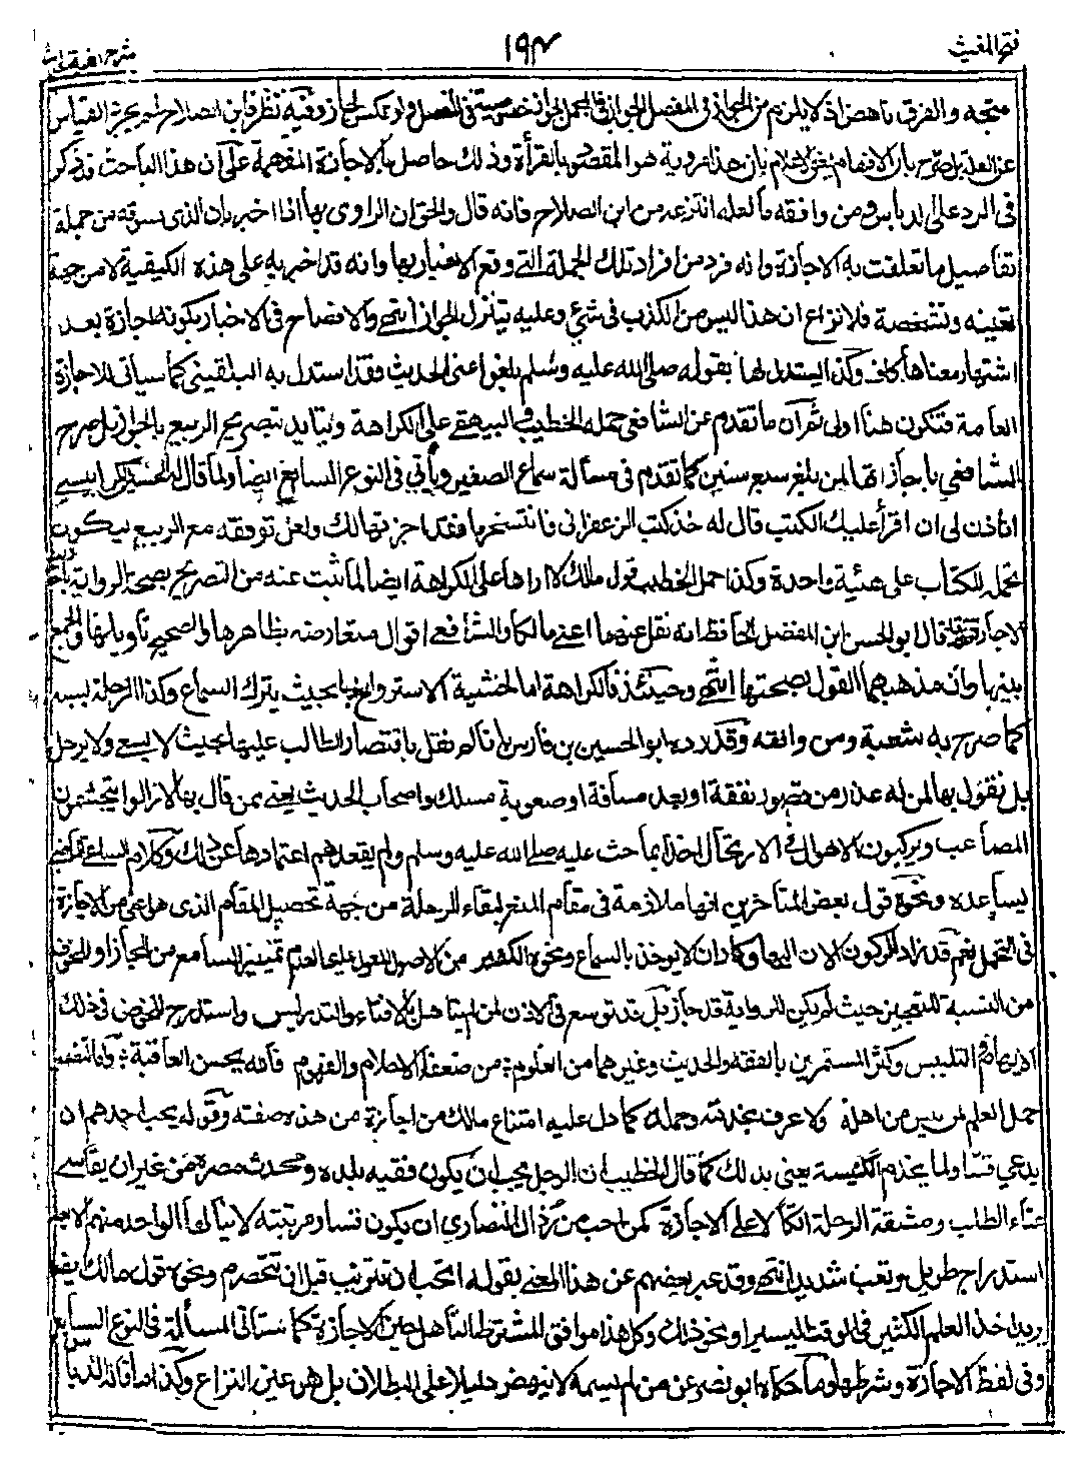 فتح المغيث ١٩٣ شرح الفية الحديث
متجه والفرق ناهض اذ لا يلزم من الجواز في المفصل الجواز في المجمل لجواز خصوصية في المفصل ولو عكس لجاز وفيه نظر فابن الصلاح لم يجر القياس
عن العلة بل صرح بان الافهام بان هذا مروية هو المقصود بالقرأة وذلك حاصل بالاجازة المفهمة على ان هذا الباحث قد ذكر
في الرد على الدباس ومن وافقه ما لعله انتزعه من ابن الصلاح فانه قال والحق ان الراوى بها اذا اخبر بان الذى سوقه من جملة
تفاصيل ما تعلقت به الاجازة وانه فرد من افراد تلك الجملة التي وقع الاخبار بها وانه قد اخبر به على هذه الكيفية لا من جهة
تعيينه وتشخصة فلا نزاع ان هذا ليس من الكذب في شئ وعليه يتنزل الجواز انتهى والافصاح في الاخبار بكونه اجازة بعد
اشتهار معناها كاف وكذا يستدل لها بقوله صلى الله عليه وسلم بلغوا عنى الحديث فقد استدل به البلقيني كما سيأتي للاجازة
العامة فتكون هنا اولى ثم ان ما تقدم عن الشافعي حمله الخطيب والبيهقي على الكراهة ويتايد بتصريح الربيع بالجواز بل صرح
الشافعي باجازتها لمن بلغ سبع سنين كما تقدم في مسألة سماع الصغير ويأتي في النوع السابع ايضا ولما قال له الحسين الكرابيسي
اتأذن لى ان اقرأ عليك الكتب قال له خذ كتب الزعفراني فانتسخها فقد اجزتها لك ولعل توقفه مع الربيع ليكون
تحمله للكتاب على هيئة واحدة وكذا حمل الخطيب قول مالك لا اراها على الكراهة ايضا لما ثبت عنه من التصريح بصحة الرواية باحاديث
الاجازة قال ابو الحسن ابن المفضل الحافظ انه نقل عنهما اعنى مالكا والشافعي اقوال متعارضه بظاهرها والصحيح تاويلها والجمع
بينها وان مذهبهما القول بصحتها انتهى وحينئذ فالكراهة اما لخشية الاسترواح بها بحيث يترك السماع وكذا الرحلة بسببه
كما صرح به شعبة ومن وافقه وقد رده ابو الحسين بن فارس بانا لم نقل باقتصار الطالب عليها بحيث لا يسعى ولا يرحل
بل نقول بها لمن له عذر من قصور نفقة او بعد مسافة او صعوبة مسلك واصحاب الحديث يعنى ممن قال بها لا زالوا يتجشمون
المصاعب ويركبون الاهوال في الارتحال اخذا بما حث عليه صلى الله عليه وسلم ولم يقعدهم اعتمادها عن ذلك وكلام السلفي
يساعده ونحوه قول بعض المتأخرين انها ملازمة في مقام المنع لبقاء الرحلة من جهة تحصيل المقام الذى هو اعلى من الاجازة
في التحمل نعم قد زاد الركون الان اليها وكاد ان لا يوخذ بالسماع ونحوه الكثير من الاصول المعول عليها لعدم تمييز السامع من المجاز او
من النسبة للتعجيز حيث لم يكن للرواية قد حاز بل قد توسع في الاذن لمن لم يتاهل بالافتاء والتدريس واستدرج للخوض في ذلك
التلبيس وكثر المستمرين بالفقه والحديث وغيرهما من العلوم من ضعفاء الاحلام والفهوم فالله يحسن العاقبة
حمل العلم لمن ليس من اهله ولا عرف بخدمته وحمله كما دل عليه امتناع مالك من اجازة من هذه صفته وقوله يحب احدهم ان
يدعى قسا ولما يخدم الكنيسة يعنى بذلك كما قال الخطيب ان الرجل يحب ان يكون فقيه بلده ومحدث مصره من غير ان يقاسي
عناء الطلب ومشقة الرحلة اتكالا على الاجازة كمن احب من رذال النصاري ان يكون قسا ومرتبته لا ينالها الواحد منهم الا بعد
استدراج طويل وتعب شديد انتهى وقد عبر بعضهم عن هذا المعنى بقوله اتحب ان تتزبب قبل ان تتحصرم ونحوه قول مالك ايضا
يريد اخذ العلم الكثير في الوقت اليسير او نحو ذلك وكل هذا موافق للمشترط التأهل حين الاجازة كما ستأتي المسألة في النوع السابع
وفي لفظ الاجازة وشرطها وما حكاه ابو نصر عن من لم يسمه لا ينهض دليلا على البطلان بل هو عين النزاع وكذا ما قاله الدبا